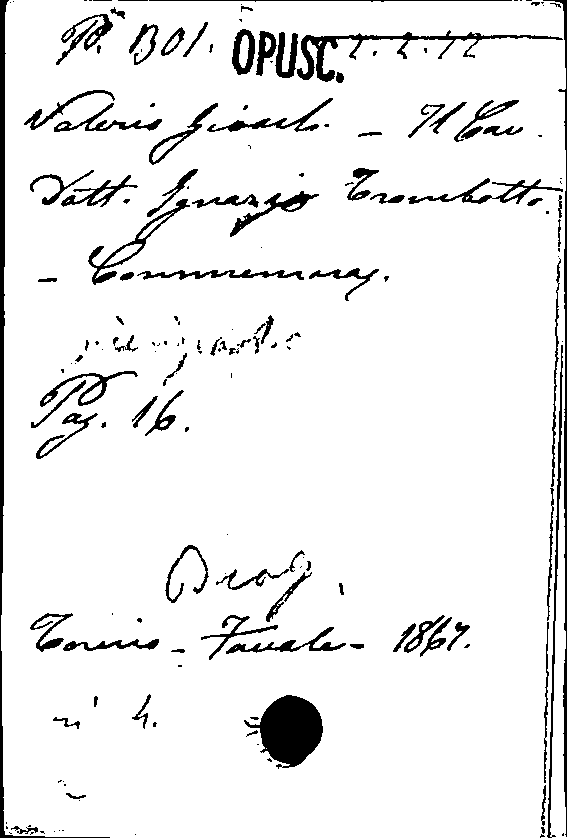 P. B01. OPUSC. 2.2.12
Valerio Gioach. – Il Cav.
Dott. Ignazio Trombotto.
– Commemoraz.
Pag. 16.
Biog.
Torino – Favale – 1867.
n' 4.